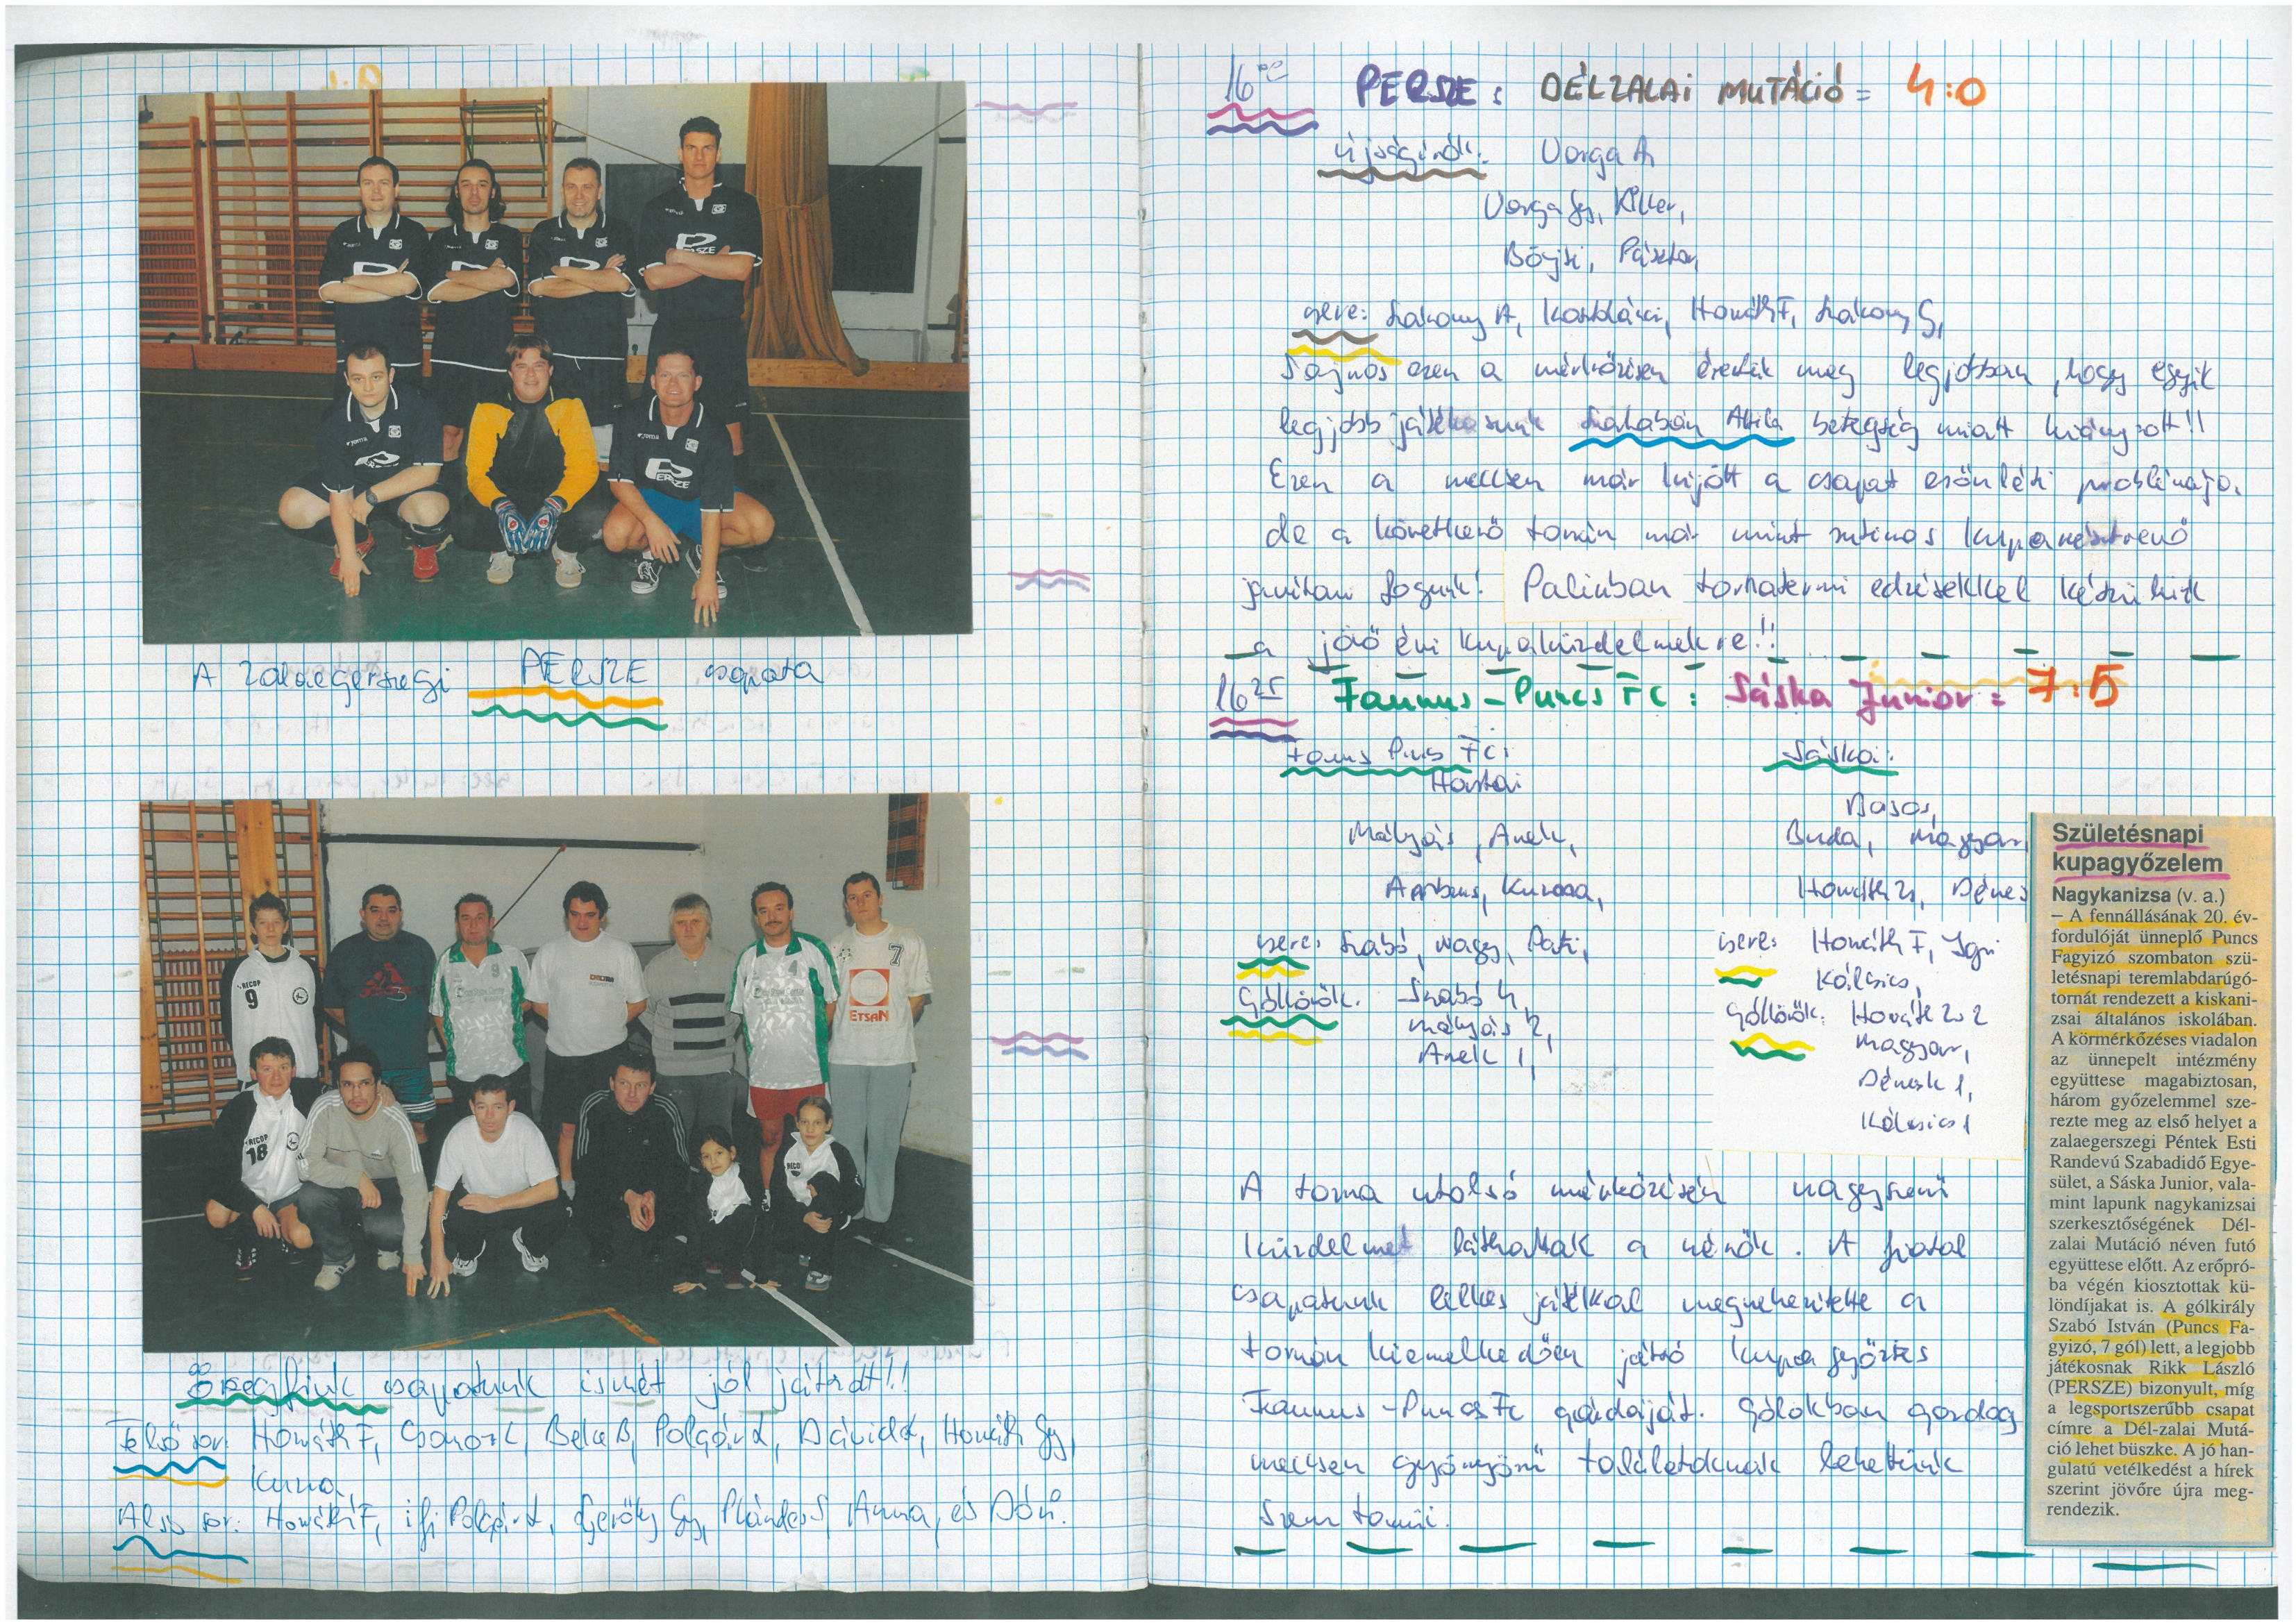 A Zalaegerszegi PERSZE csapata
Öregfiúk csapatunk ismét jól játszott!!
Felső sor: Horváth F, Bela B, Polgár L, Dávid L, Horváth Gy,
Alsó sor: Horváth F, ifj Polgár L, Gerőly Gy, Anna, és Dóri.
16⁰⁰ PERSZE : DÉLZALAI MUTÁCIÓ = 4:0
újságírók: Varga A,
Varga Gy, Killer,
Böjti, Pásztor,
csere: Szakony A, Horváth F, Szakony G,
Sajnos ezen a mérkőzésen éreztük meg legjobban, hogy egyik
legjobb játékosunk Szakabán Attila betegség miatt hiányzott!!
Ezen a meccsen már kijött a csapat erőnléti problémája,
de a következő tornán már mint rutinos kuparésztvevő
javítani fogunk! Palinban tornatermi edzésekkel készülünk
a jövő évi kupaküzdelmekre!!
16²⁵ Faunus - Puncs FC : Sáska Junior = 7:5
Faunus Puncs FC: Sáska:
Hartai
Mátyás, Anek, Buda, Magyar,
Kurcsa, Horváth Zs, Dénes
csere: Szabó, Nagy, Pati, csere: Horváth F, Igri
Kálcsics,
Góllövők: Szabó 4, Góllövők: Horváth Zs 2
Mátyás 2, Magyar 1,
Anek 1, Dénes 1,
Kálcsics 1
A torna utolsó mérkőzésén nagyszerű
küzdelmet láthattak a nézők. A fiatal
csapatunk lelkes játékkal megnehezítette a
tornán kiemelkedően játszó kupagyőztes
Faunus - Puncs FC gárdáját. Gólokban gazdag
meccsen gyönyörű találatoknak lehettünk
szemtanúi.
Születésnapi
kupagyőzelem
Nagykanizsa (v. a.)
– A fennállásának 20. év-
fordulóját ünneplő Puncs
Fagyizó szombaton szü-
letésnapi teremlabdarúgó-
tornát rendezett a kiskani-
zsai általános iskolában.
A körmérkőzéses viadalon
az ünnepelt intézmény
együttese magabiztosan,
három győzelemmel sze-
rezte meg az első helyet a
zalaegerszegi Péntek Esti
Randevú Szabadidő Egye-
sület, a Sáska Junior, vala-
mint lapunk nagykanizsai
szerkesztőségének Dél-
zalai Mutáció néven futó
együttese előtt. Az erőpró-
ba végén kiosztottak kü-
löndíjakat is. A gólkirály
Szabó István (Puncs Fa-
gyizó, 7 gól) lett, a legjobb
játékosnak Rikk László
(PERSZE) bizonyult, míg
a legsportszerűbb csapat
címre a Dél-zalai Mutá-
ció lehet büszke. A jó han-
gulatú vetélkedést a hírek
szerint jövőre újra meg-
rendezik.